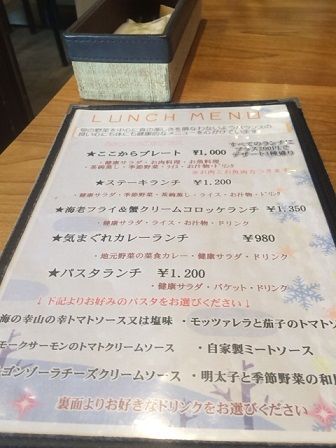 LUNCH MENU
すべてのランチに
プラス200円で
デザート1種盛り
★ここからプレート ¥1,000
・健康サラダ・お肉料理・お魚料理
・茶碗蒸し・季節野菜・ライス・お汁物・ドリンク
★ステーキランチ ¥1,200
・健康サラダ・季節野菜・茶碗蒸し・ライス・お汁物・ドリンク
★海老フライ&蟹クリームコロッケランチ ¥1,350
・健康サラダ・ライス・お汁物・ドリンク
★気まぐれカレーランチ ¥980
・地元野菜の菜食カレー・健康サラダ・ドリンク
★パスタランチ ¥1,200
・健康サラダ・バケット・ドリンク
↓下記よりお好みのパスタをお選びください↓
海の幸山の幸トマトソース又は塩味 ・モッツァレラと茄子のトマト
モークサーモンのトマトクリームソース ・自家製ミートソース
ゴンゾーラチーズクリームソース ・明太子と季節野菜の和風
裏面よりお好きなドリンクをお選びください